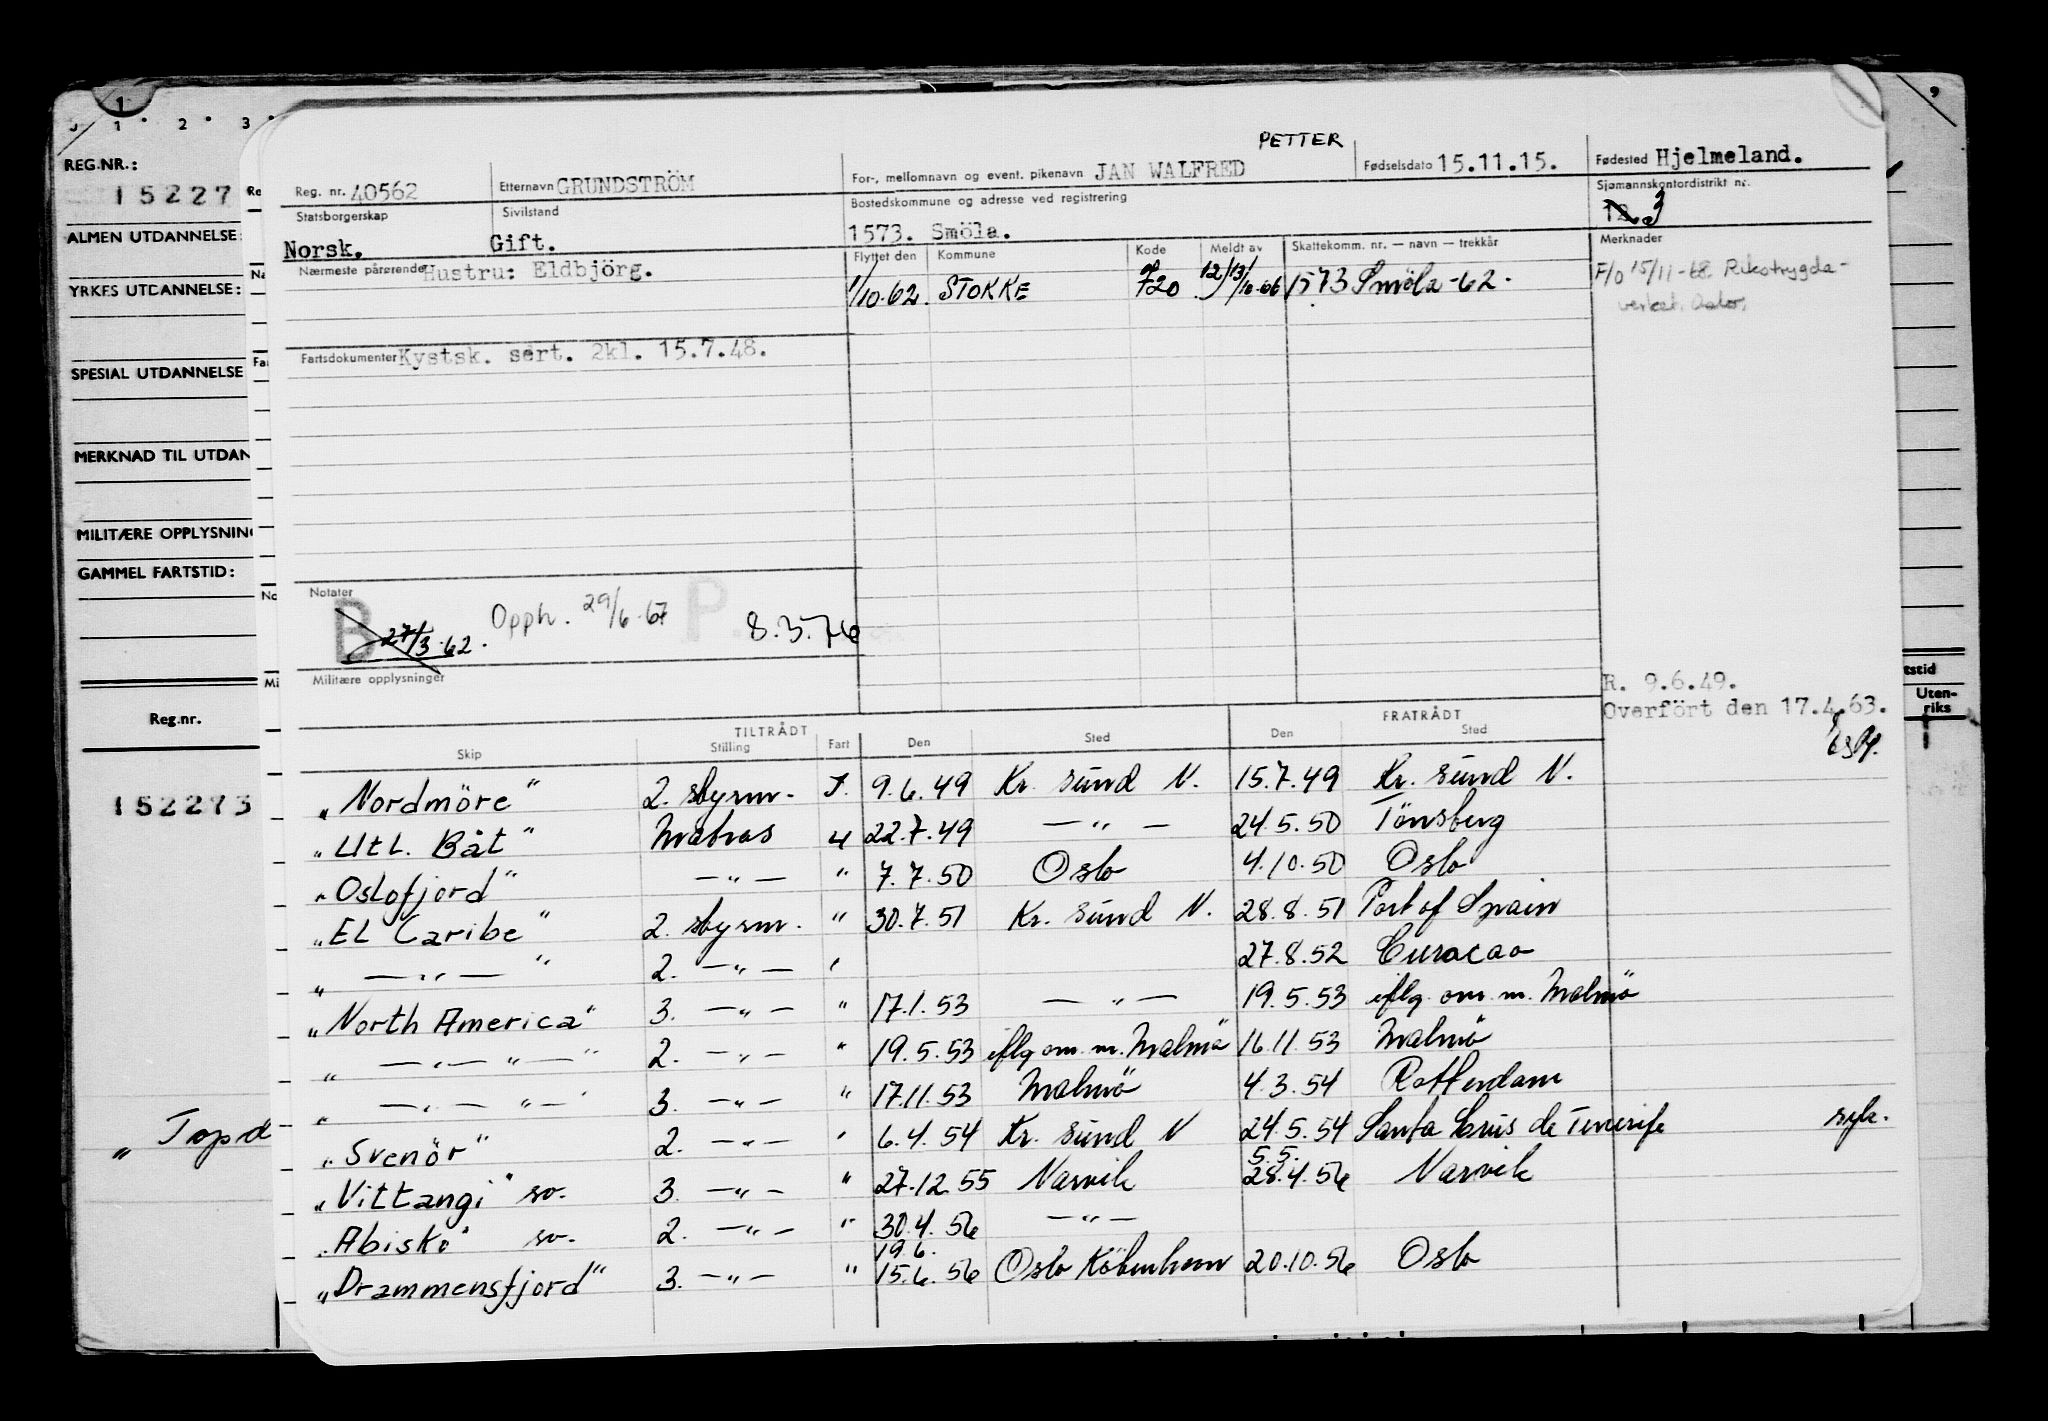 1
1 2 3
REG.NR.:
15227
ALMEN UTDANNELSE:
YRKES UTDANNELSE:
SPESIAL UTDANNELSE
MERKNAD TIL UTDAN
MILITÆRE OPPLYSNIN
GAMMEL FARTSTID:
Reg.nr.
152273
„ Topd
PETTER
Reg. nr. 40562 Etternavn GRUNDSTRÖM For-, mellomnavn og event. pikenavn JAN WALFRED Fødselsdato 15.11.15. Fødested Hjelmeland.
Statsborgerskap Sivilstand Bostedskommune og adresse ved registrering Sjømannskontordistrikt nr.
Norsk. Gift. 1573. Smöla. 12. 3
Nærmeste pårørende Hustru: Eldbjörg. Flyttet den Kommune Kode Meldt av Skattekomm. nr. — navn — trekkår Merknader
1/10.62. STOKKE 720 12/13/10.66 1573 Smöla -62. F/o 15/11-68. Rikstrygde-
verket, Oslo,
Fartsdokumenter Kystsk. sert. 2kl. 15.7.48.
Notater
B 27/3.62. Opph. 29/6.67 P. 8.3.76
Militære opplysninger
R. 9.6.49.
Overfört den 17.4.63.
TILTRÅDT FRATRÅDT
Skip Stilling Fart Den Sted Den Sted
„Nordmöre" 2. styrm. J. 9.6.49 Kr. sund N. 15.7.49 Kr. sund N.
„Utl. Båt" Matros U 22.7.49 — „ — 24.5.50 Tönsberg
„Oslofjord" — „ — " 7.7.50 Oslo 4.10.50 Oslo
„El Caribe" 2. styrm. " 30.7.51 Kr. sund N. 28.8.51 Port of Spain
„ — „ — " 2. — „ — " 27.8.52 Curacao
„North America" 3. — „ — " 17.1.53 — „ — 19.5.53 iflg. om. m. Malmö
„ — „ — „ — " 2. — „ — " 19.5.53 iflg om. m. Malmö 16.11.53 Malmö
„ — „ — „ — " 3. — „ — " 17.11.53 Malmö 4.3.54 Rotterdam
„Svenör" 2. — „ — " 6.4.54 Kr. sund N 24.5.54 Santa Crus de Tenerife syk.
„Vittangi" sv. 3. — „ — " 27.12.55 Narvik 5.5. 28.4.56 Narvik
„Abisko" sv. 2. — „ — " 30.4.56 — „ —
„Drammensfjord" 3. — „ — " 19.6. 15.6.56 Oslo Köbenhavn 20.10.56 Oslo
tstid
Uten-
riks